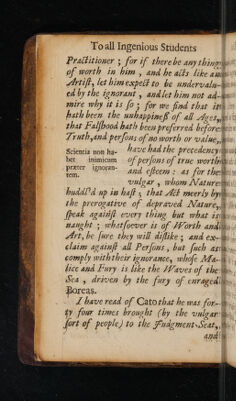 To all Ingenious Students
Practitioner ; for if there be any thing
of worth in him , and he acts like an
Artist, let him expect to be undervalu-
ed by the ignorant , and let him not ad-
mire why it is so ; for we find that it
hath been the unhappiness of all Ages,
that Falshood hath been preferred before
Truth, and persons of no worth or value,
have had the precedency
of persons of true worth
and esteem : as for the
vulgar , whom Nature
Scientia non ha-
bet inimicum
præter ignoran-
tem.
hudal'd up in hast ; that Act meerly by
the prerogative of depraved Nature,
speak against every thing but what is
naught ; whatsoever is of Worth and
Art, be sure they will dislike ; and ex-
claim against all Persons, but such as
comply with their ignorance, whose Ma-
lice and Fury is like the Waves of the
Sea , driven by the fury of enraged
Boreas.
I have read of Cato that he was for-
ty four times brought (by the vulgar
sort of people) to the Judgment-Seat,
and